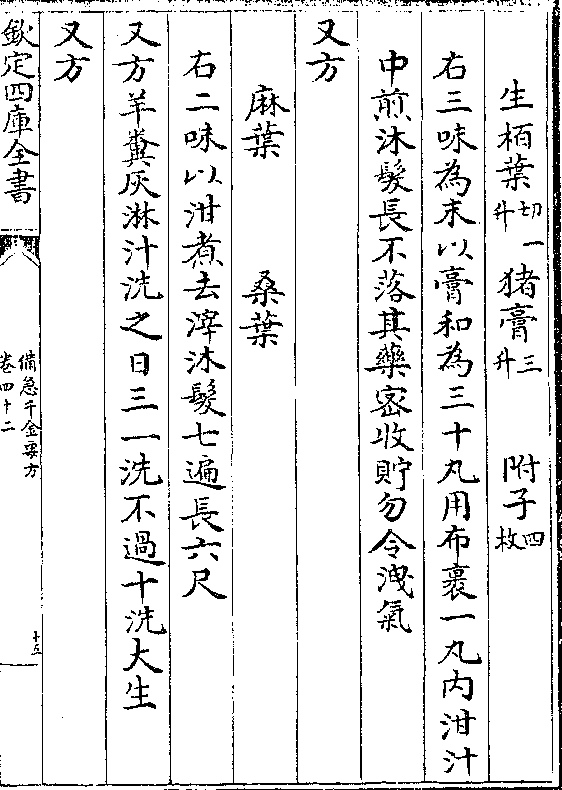 生栢葉切一升 猪膏三升 附子四枚
右三味為末以膏和為三十丸用布裹一丸内泔汁
中煎沐髮長不落其藥密收貯勿令洩氣
又方
麻葉 桑葉
右二味以泔煮去滓沐髮七遍長六尺
又方羊糞灰淋汁洗之日三一洗不過十洗大生
又方
欽定四庫全書
備急千金要方
卷四十二
十五